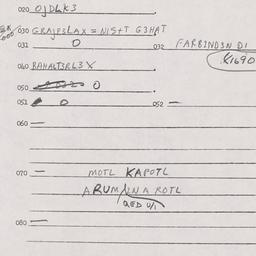 020 OJDLK3
030 GRAJP3LAX = NIS+T G3HAT
031 O
032 FARBIND3N DI
K1690
040 RAHALT3RL3X
050 O
051 O
052 —
060 —
070 — MOTL KAPOTL
ARUM/INA ROTL
080 —